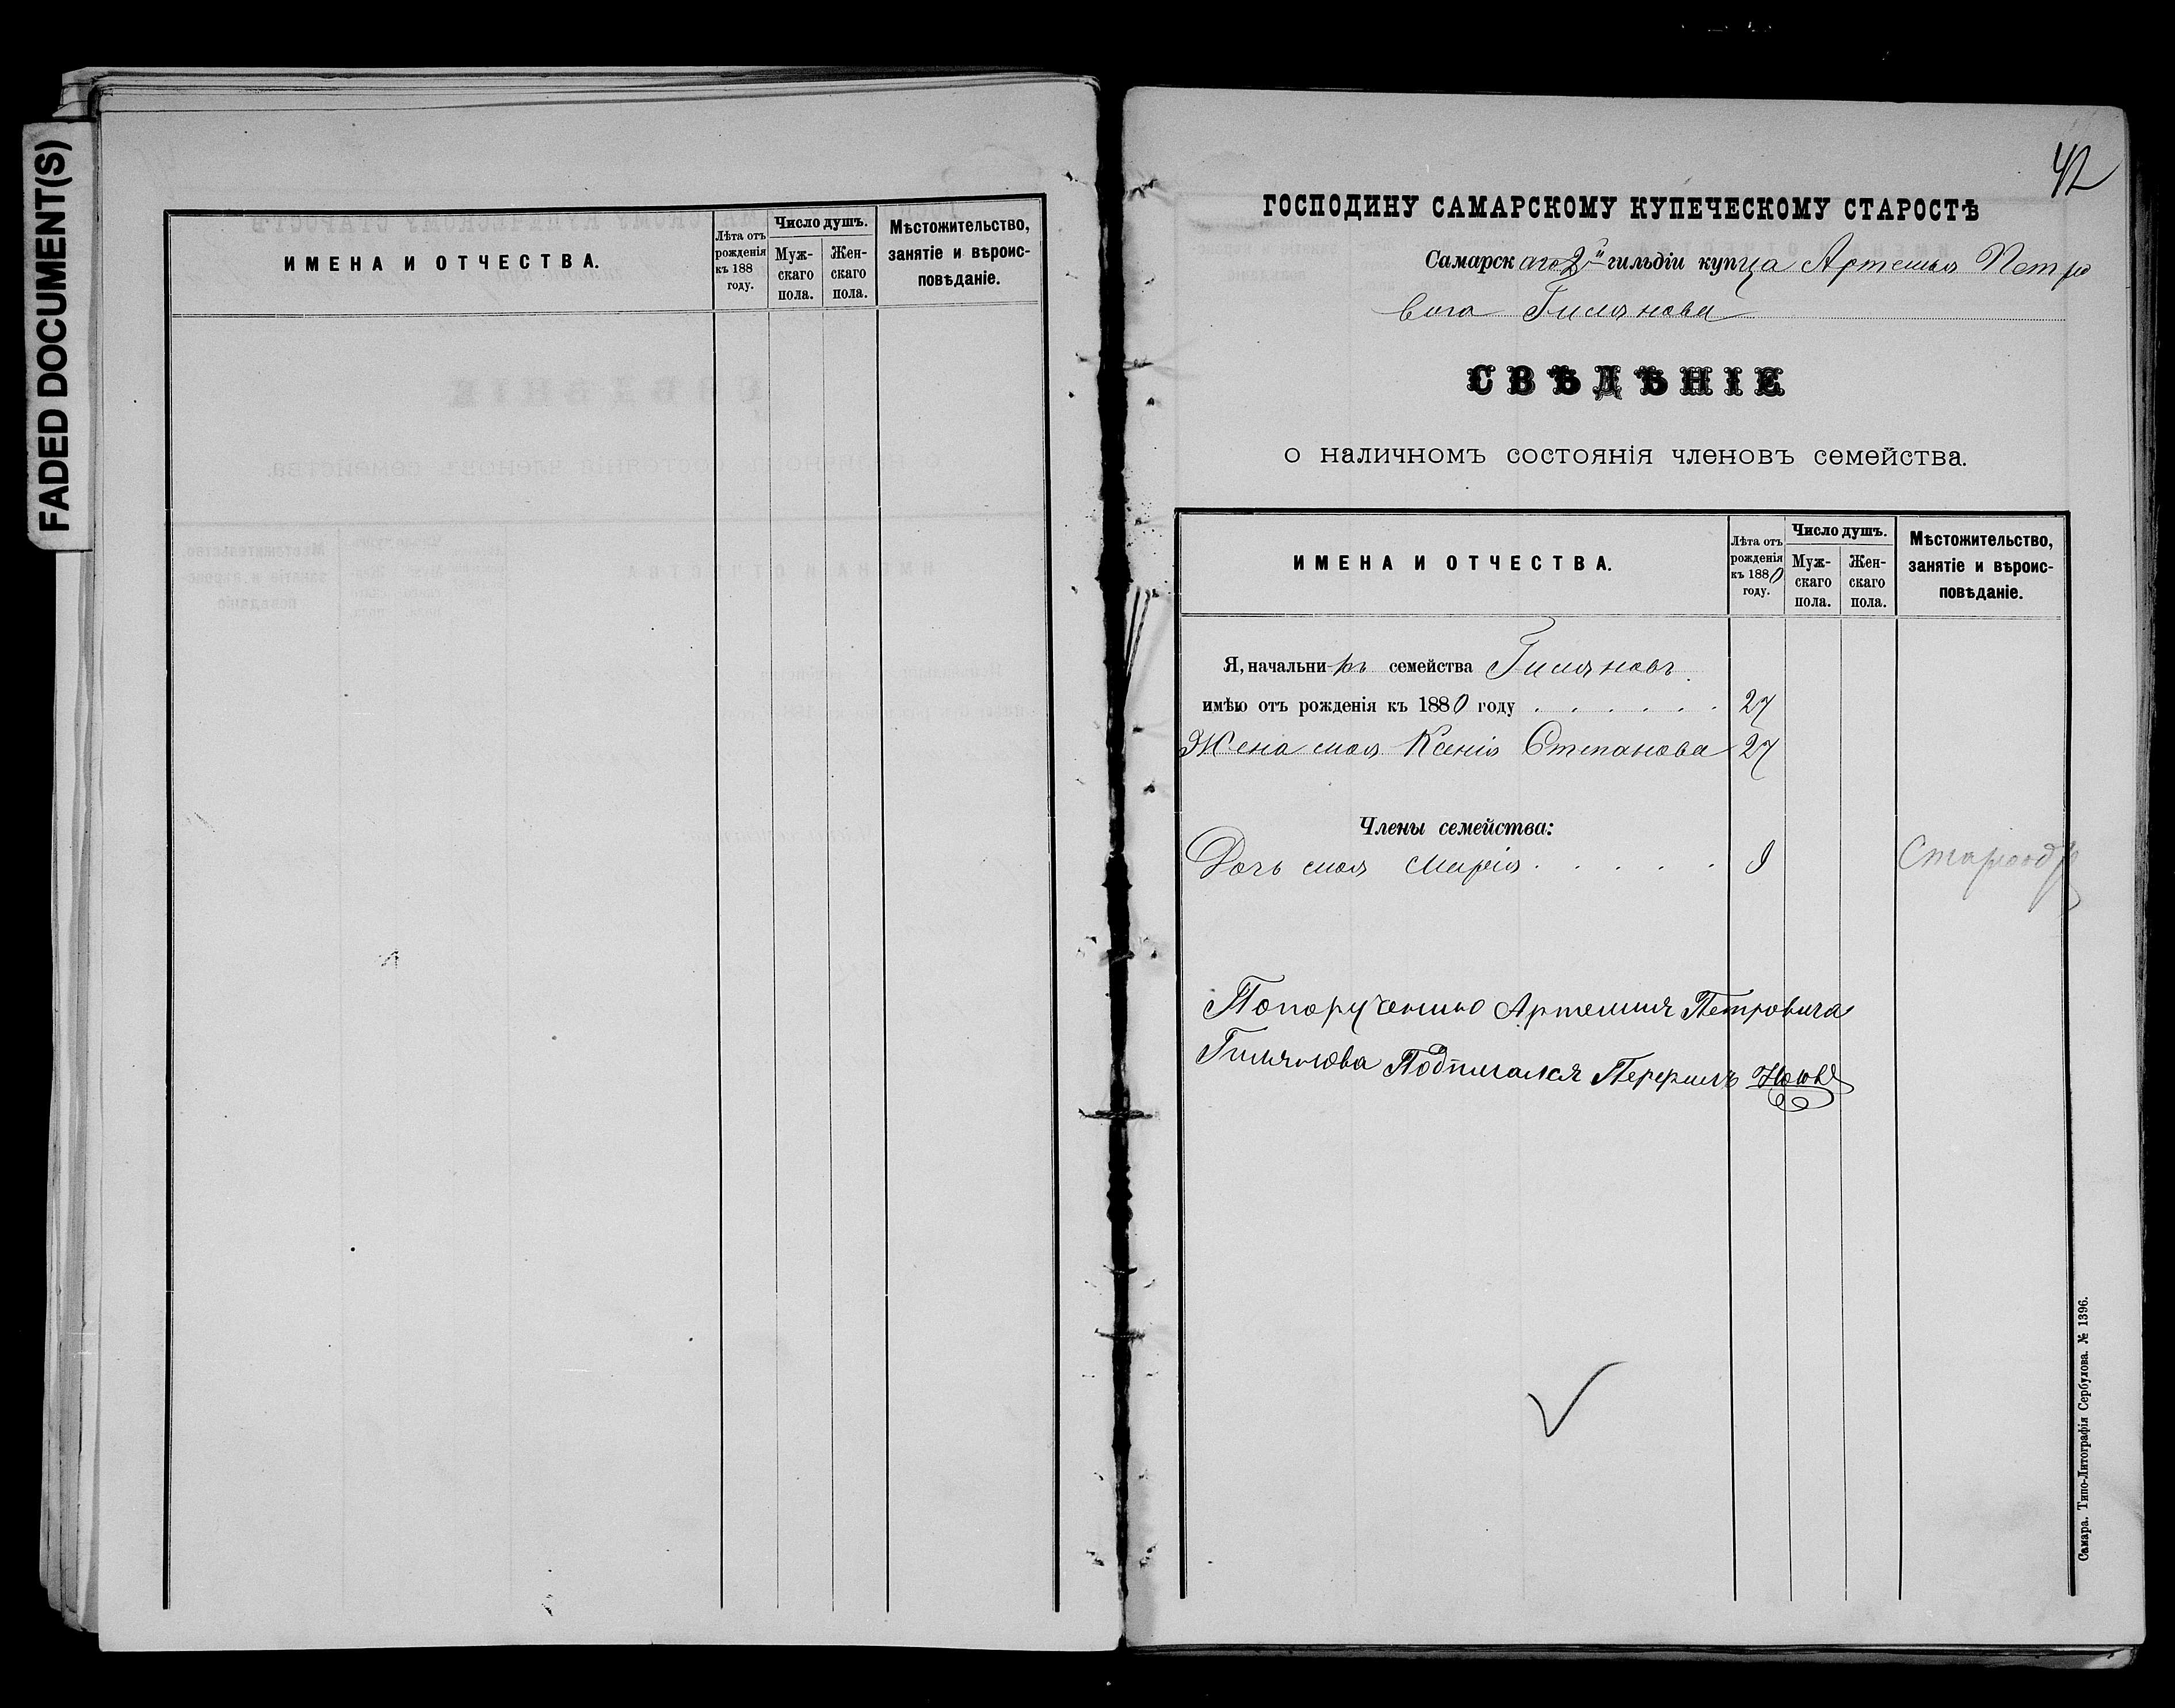 FADED DOCUMENT(S)
ИМЕНА И ОТЧЕСТВА.
Лѣта отъ рожденія къ 188 году.
Число душъ.
Мужскаго пола.
Женскаго пола.
Мѣстожительство, занятіе и вѣроисповѣданіе.
42
ГОСПОДИНУ САМАРСКОМУ КУПЕЧЕСКОМУ СТАРОСТѢ
Самарскаго 2й гильдіи купца Артемья Петро
вича Гилянова
СВѢДѢНІЕ
о наличномъ состоянія членовъ семейства.
ИМЕНА И ОТЧЕСТВА.
Лѣта отъ рожденія къ 1880 году.
Число душъ.
Мужскаго пола.
Женскаго пола.
Мѣстожительство, занятіе и вѣроисповѣданіе.
Я, начальникъ семейства Гиляновъ
имѣю отъ рожденія къ 1880 году . . . . . . 27
Жена моя Ксенія Степанова 27
Члены семейства:
Дочь моя Марія . . . . . 9 Старообр
Попорученію Артемия Петровича
Гилянова Подписался
Самара. Типо-Литографія Сербулова. № 1396.